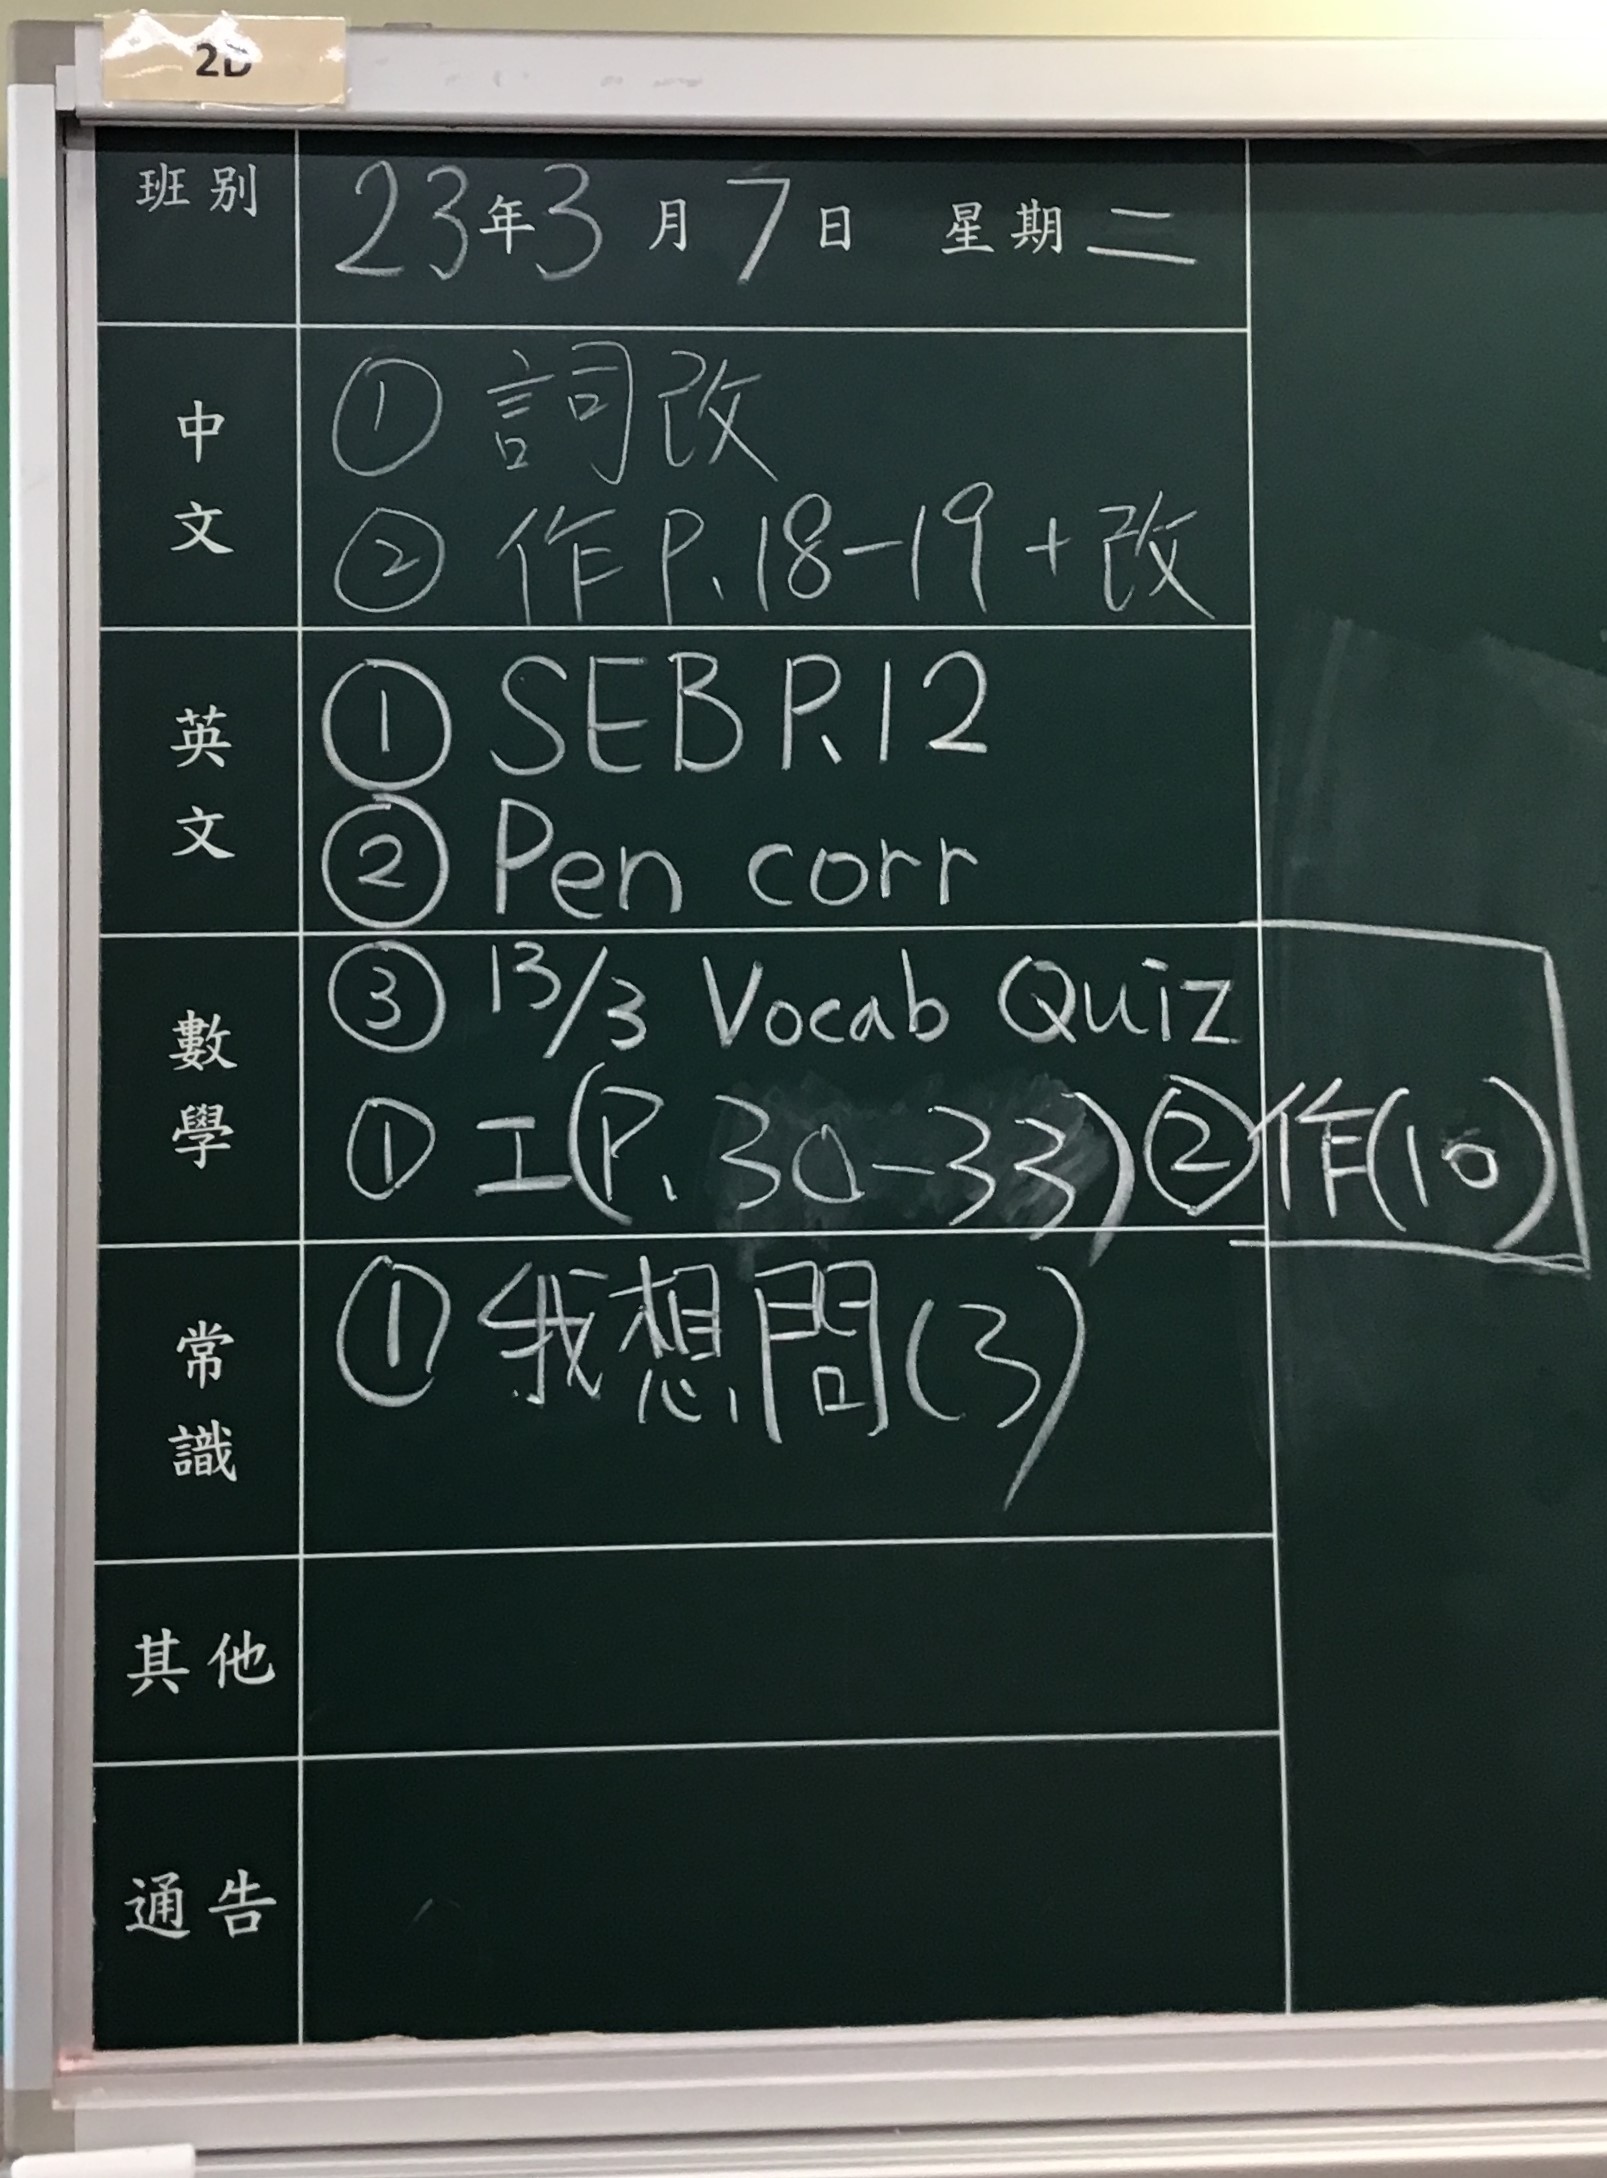 2D
班別 23年3月7日 星期二
中文
① 詞改
② 作P.18-19+改
英文
① SEB P.12
② Pen corr
數學
③ 13/3 Vocab Quiz
① 工(P.30-33) ② 作(10)
常識
① 我想問(3)
其他
通告